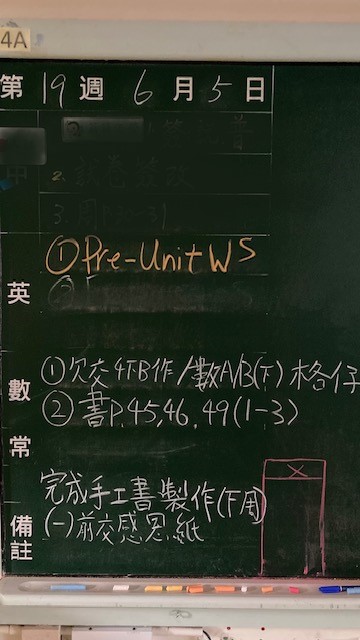 4A
第 19 週 6 月 5 日
中
2.
3.
英
① Pre-Unit WS
數
① 欠交4下B作/數A/B(下) 格仔
② 書P.45,46,49(1-3)
常
備註
完成手工書製作(下周)
(一)前交感恩紙